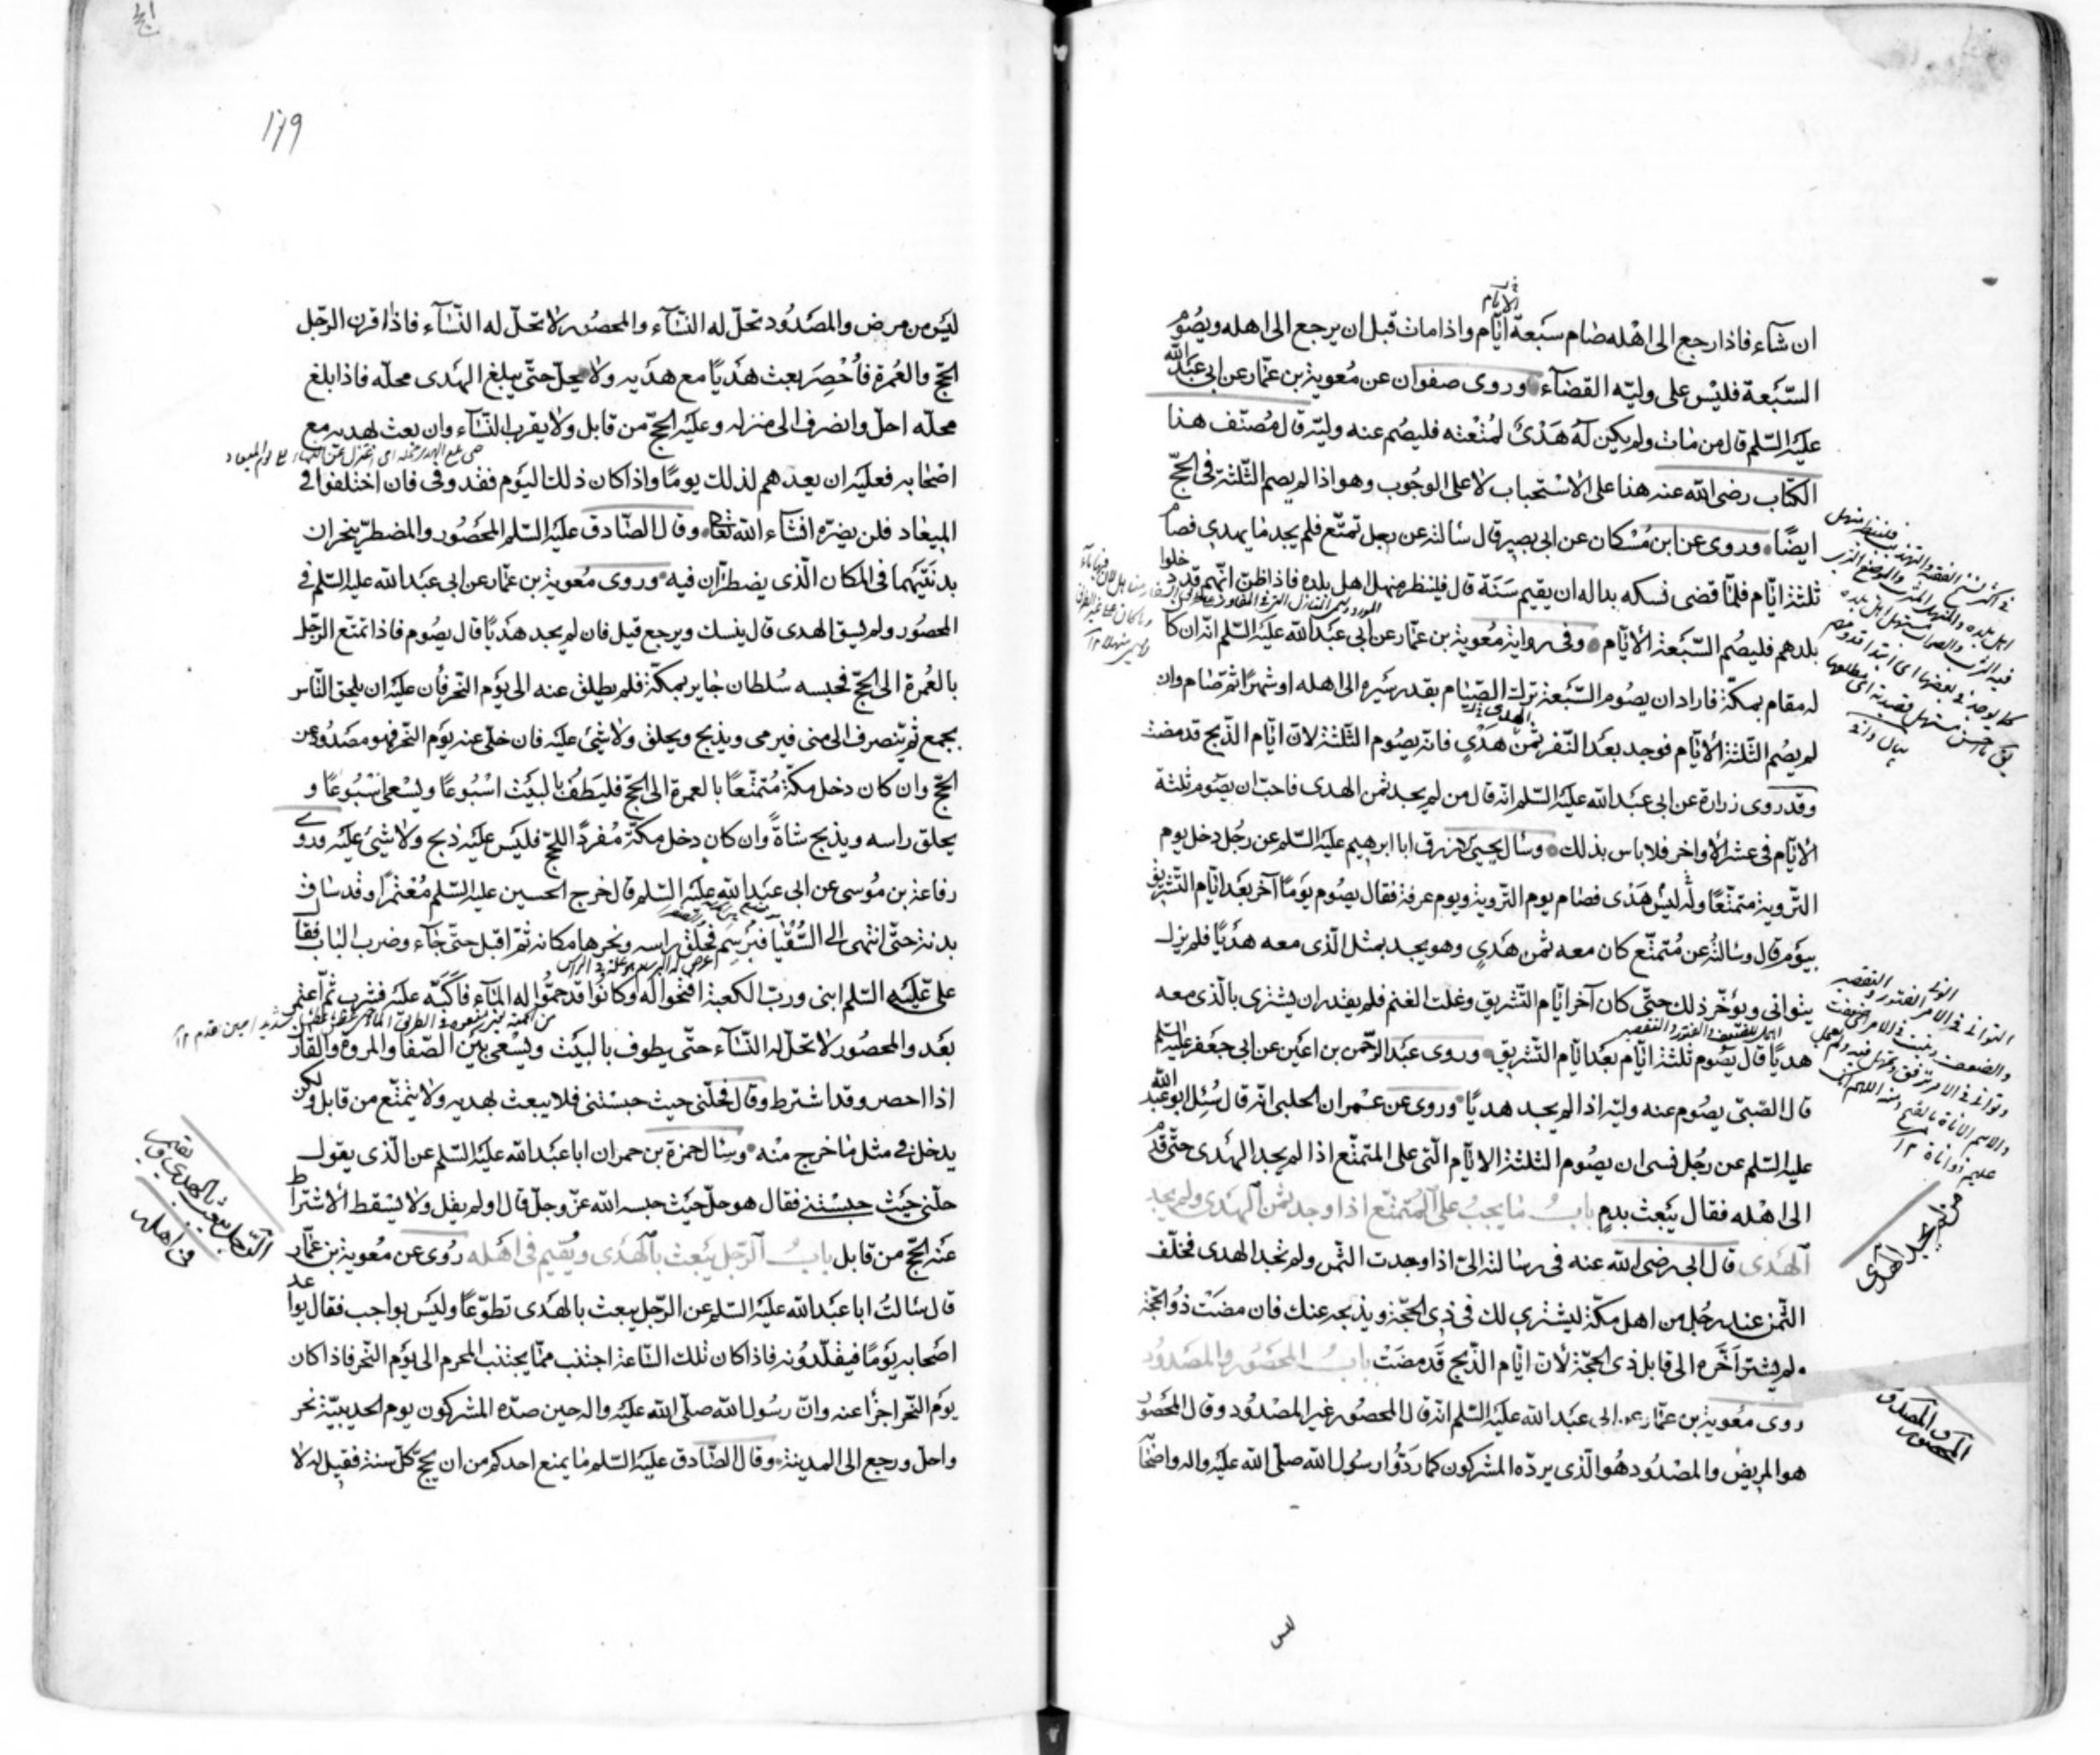 ان شآء فاذا رجع الى اهله صام سبعة ايّام واذا مات قبل ان يرجع الى اهله ويصوم
السّبعة فليس على وليّه القضآء وروى صفوان عن معوية بن عمّار عن ابى عبد الله
عليه السّلم قال من مات ولم يكن له هدى لمتعته فليصم عنه وليّه قال مصنّف هذا
الكتاب رضى الله عنه هذا على الاستحباب لا على الوجوب وهو اذا لم يصم الثّلثة فى الحجّ
ايضًا وروى عن ابن مسكان عن ابى بصير قال سالته عن رجل تمتّع فلم يجد ما يهدى فصام
ثلثة ايّام فلمّا قضى نسكه بدا له ان يقيم سنة قال فلينظر منهل اهل بلده فاذا ظنّ انّهم قد دخلوا
بلدهم فليصم السّبعة الايّام وفى رواية معوية بن عمّار عن ابى عبد الله عليه السّلم انّه ان كا
له مقام بمكّة فاراد ان يصوم السّبعة ترك الصّيام بقدر سيره الى اهله او شهرًا ثمّ صام وان
لم يصم الثّلثة الايّام فوجد بعد النّفر ثمن هدى فانّه يصوم الثّلثة لانّ ايّام الذّبح قد مضت
وقد روى زرارة عن ابى عبد الله عليه السّلم انّه قال من لم يجد ثمن الهدى فاحبّ ان يصوم ثلثة
الايّام فى عشر الاواخر فلا باس بذلك وسال يحيى الازرق ابا ابرهيم عليه السّلم عن رجل دخل يوم
التّروية متمتّعًا وله ليس هدى فصام يوم التّروية ويوم عرفة فقال يصوم يومًا آخر بعد ايّام التّشريق
بيوم قال وسالته عن متمتّع كان معه ثمن هدى وهو يجد بمثل الّذى معه هديًا فلم يزل
يتوانى ويؤخّر ذلك حتّى كان آخر ايّام التّشريق وغلت الغنم فلم يقدر ان يشترى بالّذى معه
هديًا قال يصوم ثلثة ايّام بعد ايّام التّشريق وروى عبد الرّحمن بن اعين عن ابى جعفر عليه السّلم
قال الصّبىّ يصوم عنه وليّه اذا لم يجد هديًا وروى عن عمران الحلبى انّه قال سئل ابو عبد الله
عليه السّلم عن رجل نسى ان يصوم الثّلثة الايّام الّتى على المتمتّع اذا لم يجد الهدى حتّى قدم
الى اهله فقال يبعث بدم باب ما يجب على المتمتّع اذا وجد ثمن الهدى ولم يجد
الهدى قال ابى رضى الله عنه فى رسالته الىّ اذا وجدت الثّمن ولم تجد الهدى فخلّف
الثّمن عند رجل من اهل مكّة ليشترى لك فى ذى الحجّة ويذبحه عنك فان مضت ذو الحجّة
ولم يشتر اخّره الى قابل ذى الحجّة لانّ ايّام الذّبح قد مضت باب المحصور والمصدود
روى معوية بن عمّار عن ابى عبد الله عليه السّلم انّه قال المحصور غير المصدود وقال المحصور
هو المريض والمصدود هو الّذى يردّه المشركون كما ردّوا رسول الله صلّى الله عليه واله واصحا
من لم يجد الهدى
المحصور والمصدود
١٧٩
ليس من مرض والمصدود تحلّ له النّسآء والمحصور لا تحلّ له النّسآء فاذا قرن الرّجل
الحجّ والعمرة فاُحْصِرَ بعث هديًا مع هديه ولا يحلّ حتّى يبلغ الهدى محلّه فاذا بلغ
محلّه احلّ وانصرف الى منزله وعليه الحجّ من قابل ولا يقرب النّسآء وان بعث بهديه مع
اصحابه فعليه ان يعدهم لذلك يومًا واذا كان ذلك اليوم فقد وفى فان اختلفوا فى
الميعاد فلن يضرّه انشآء الله تعالى وقال الصّادق عليه السّلم المحصور والمضطرّ ينحران
بدنتيهما فى المكان الّذى يضطرّان فيه وروى معوية بن عمّار عن ابى عبد الله عليه السّلم فى
المحصور ولم يسق الهدى قال ينسك ويرجع قيل فان لم يجد هديًا قال يصوم فاذا تمتّع الرّجل
بالعمرة الى الحجّ فحبسه سلطان جاير بمكّة فلم يطلق عنه الى يوم النّحر فان عليه ان يلحق النّاس
بجمع ثمّ ينصرف الى منى فيرمى ويذبح ويحلق ولا شئ عليه فان خلّى عنه يوم النّحر فهو مصدود عن
الحجّ وان كان دخل مكّة متمتّعًا بالعمرة الى الحجّ فليطف بالبيت اسبوعًا ويسعى اسبوعًا و
يحلق راسه ويذبح شاة وان كان دخل مكّة مفردًا للحجّ فليس عليه ذبح ولا شئ عليه وروى
رفاعة بن موسى عن ابى عبد الله عليه السّلم قال خرج الحسين عليه السّلم معتمرًا وقد ساق
بدنة حتّى انتهى الى السّقيا فبرسم فحلق راسه ونحرها مكانه ثمّ اقبل حتّى جآء وضرب الباب فقال
على عليه السّلم ابنى وربّ الكعبة افتحوا له وكانوا قد حموا له المآء فاكبّ عليه فشرب ثمّ اعتمر
بعد والمحصور لا تحلّ له النّسآء حتّى يطوف بالبيت ويسعى بين الصّفا والمروة والقارن
اذا احصر وقد اشترط وقال فحلّنى حيث حبستنى فلا يبعث بهديه ولا يتمتّع من قابل ولكن
يدخل فى مثل ما خرج منه وسال حمزة بن حمران ابا عبد الله عليه السّلم عن الّذى يقول
حلّنى حيث حبستنى فقال هو حلّ حيث حبسه الله عزّ وجلّ قال او لم يقل ولا يسقط الاشتراط
عنه الحجّ من قابل باب الرّجل يبعث بالهدى ويقيم فى اهله روى عن معوية بن عمّار
قال سالت ابا عبد الله عليه السّلم عن الرّجل يبعث بالهدى تطوّعًا وليس بواجب فقال يواعد
اصحابه يومًا فيقلّدونه فاذا كان تلك السّاعة اجتنب ممّا يجتنب المحرم الى يوم النّحر فاذا كان
يوم النّحر اجزأ عنه وانّ رسول الله صلّى الله عليه واله حين صدّه المشركون يوم الحديبيّة نحر
واحلّ ورجع الى المدينة وقال الصّادق عليه السّلم ما يمنع احدكم من ان يحجّ كلّ سنة فقيل له لا
الرّجل يبعث بالهدى ويقيم
فى اهله